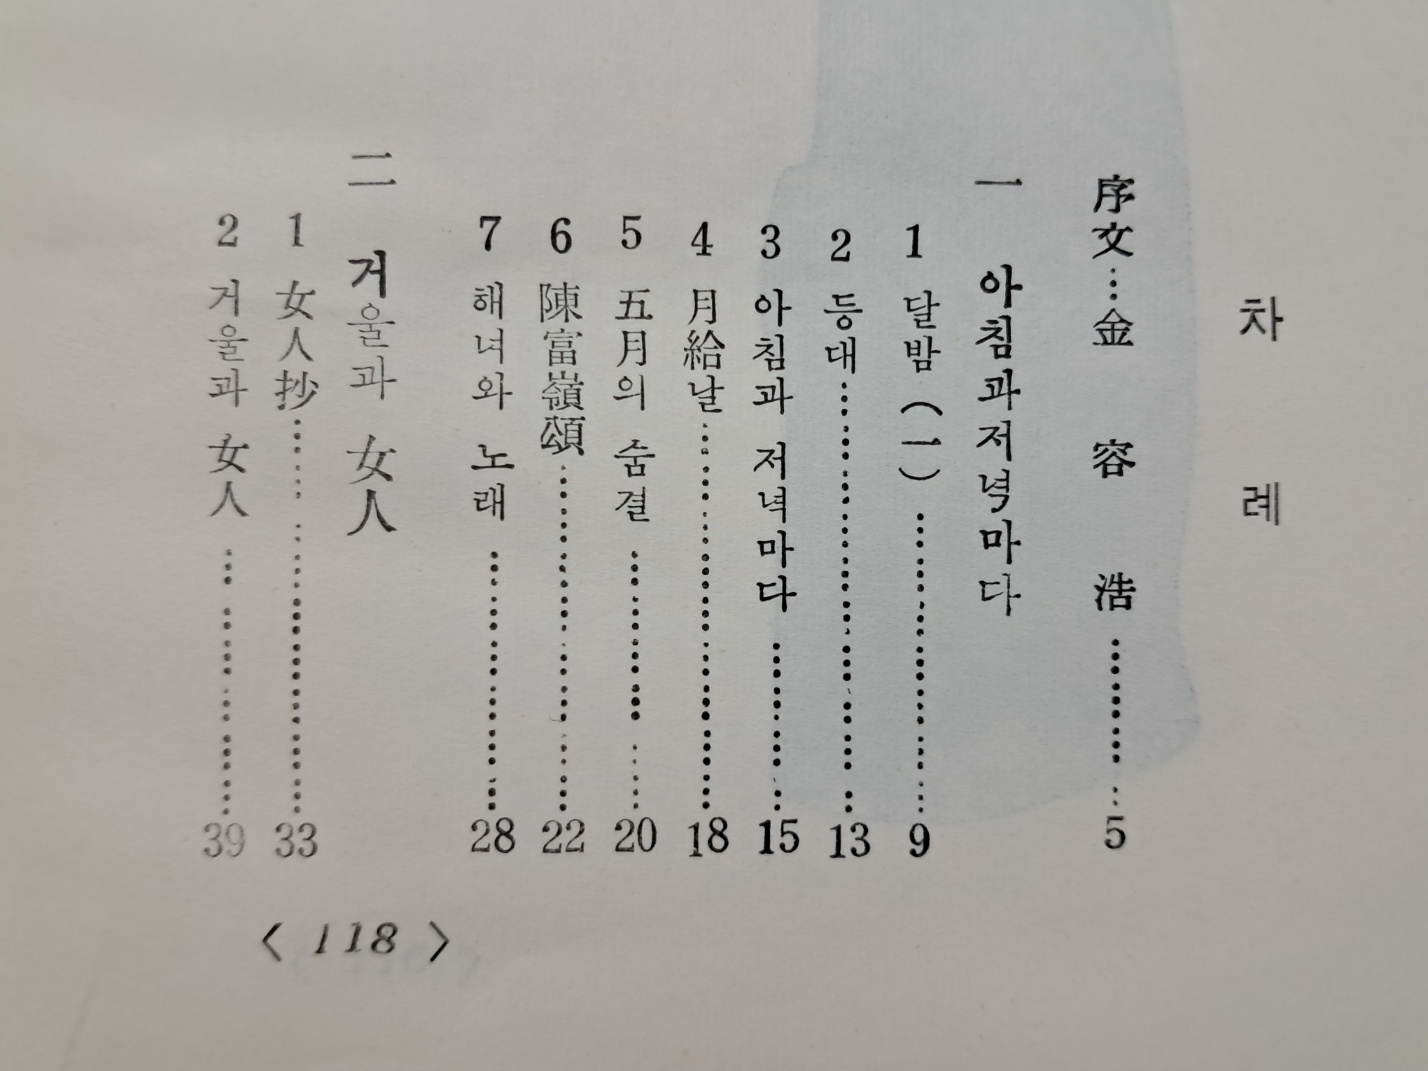 차례
序文…金容浩……5
一 아침과저녁마다
1 달밤 (一)……9
2 등대……13
3 아침과 저녁마다……15
4 月給날……18
5 五月의 숨결……20
6 陳富嶺頌……22
7 해녀와 노래……28
二 거울과 女人
1 女人抄……33
2 거울과 女人……39
〈 118 〉